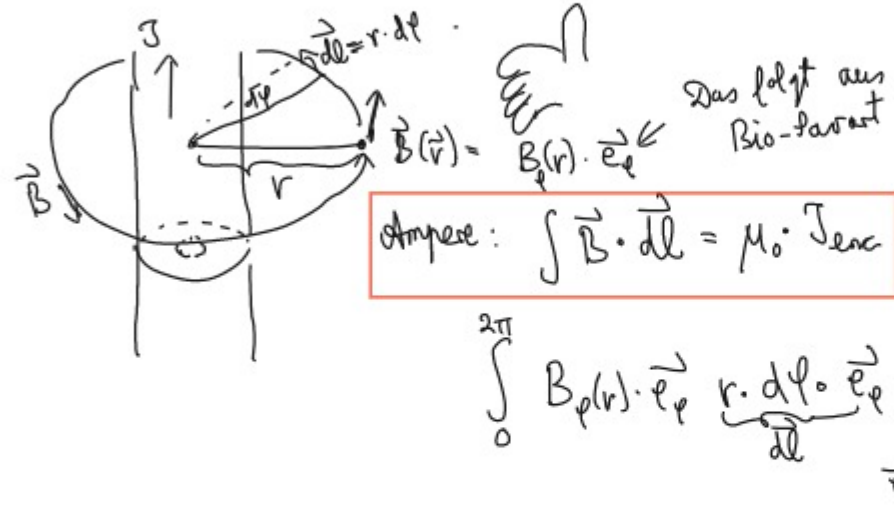 J
dl = r·dφ
dφ
B(r) = B_φ(r)·e_φ
r
B
Das folgt aus
Bio-Savart
Ampere: ∫ B·dl = μ₀·J_enc
2π
∫ B_φ(r)·e_φ r·dφ·e_φ
0
dl